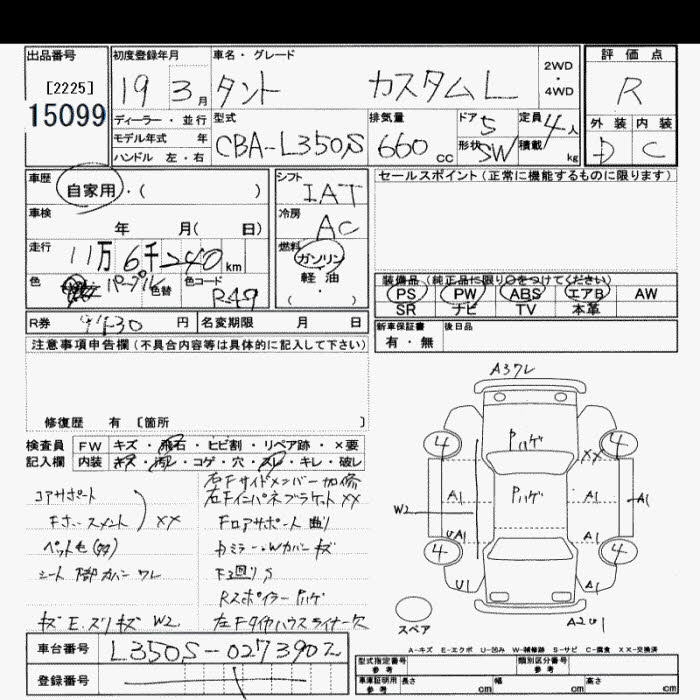 出品番号
[2225]
15099
初度登録年月
19 3月
車名・グレード
タント カスタムL
2WD
・
4WD
評価点
R
外装 内装
D C
ディーラー・並行
モデル年式 年
ハンドル 左・右
型式
CBA-L350S
排気量
660cc
ドア 5
形状 SW
定員 4人
積載 kg
車歴
自家用・( )
車検
年 月( 日)
走行
11万6千240km
色
パープル
色替
色コード
R49
シフト
IAT
冷房
AC
燃料
ガソリン
軽・油
( ・ )
セールスポイント(正常に機能するものに限ります)
装備品 (純正品に限り○をつけてください)
PS PW ABS エアB AW
SR ナビ TV 本革
R券 円
名変期限 月 日
新車保証書
有・無
後日品
注意事項申告欄(不具合内容等は具体的に記入して下さい)
修復歴 有 [箇所 ]
検査員
記入欄
FW キズ・飛石・ヒビ割・リペア跡・×要
内装 キズ・汚レ・コゲ・穴・スレ・キレ・破レ
右Fサイドメンバー加修
コアサポート
右Fインパネブラケット XX
XX
Fロアサポート 曲り
ミラー・Wカバー キズ
シート 脚カバー ワレ
F廻り S
Rスポイラー Pハゲ
キズ E.スリキズ W2
左Fタイヤハウスライナー欠
A3ワレ
Pハゲ
4 4
XX
Pハゲ
A1 A1 A1
W2
UA1 A1
4 4
U1 A1
A2U1
スペア
A-キズ E-エクボ U-凹み W-補修跡 S-サビ C-腐食 XX-交換済
車台番号
L350S-0273902
登録番号
型式指定番号
参考
類別区分番号
参考
車庫証明用
参考
長さ cm
幅 cm
高さ cm